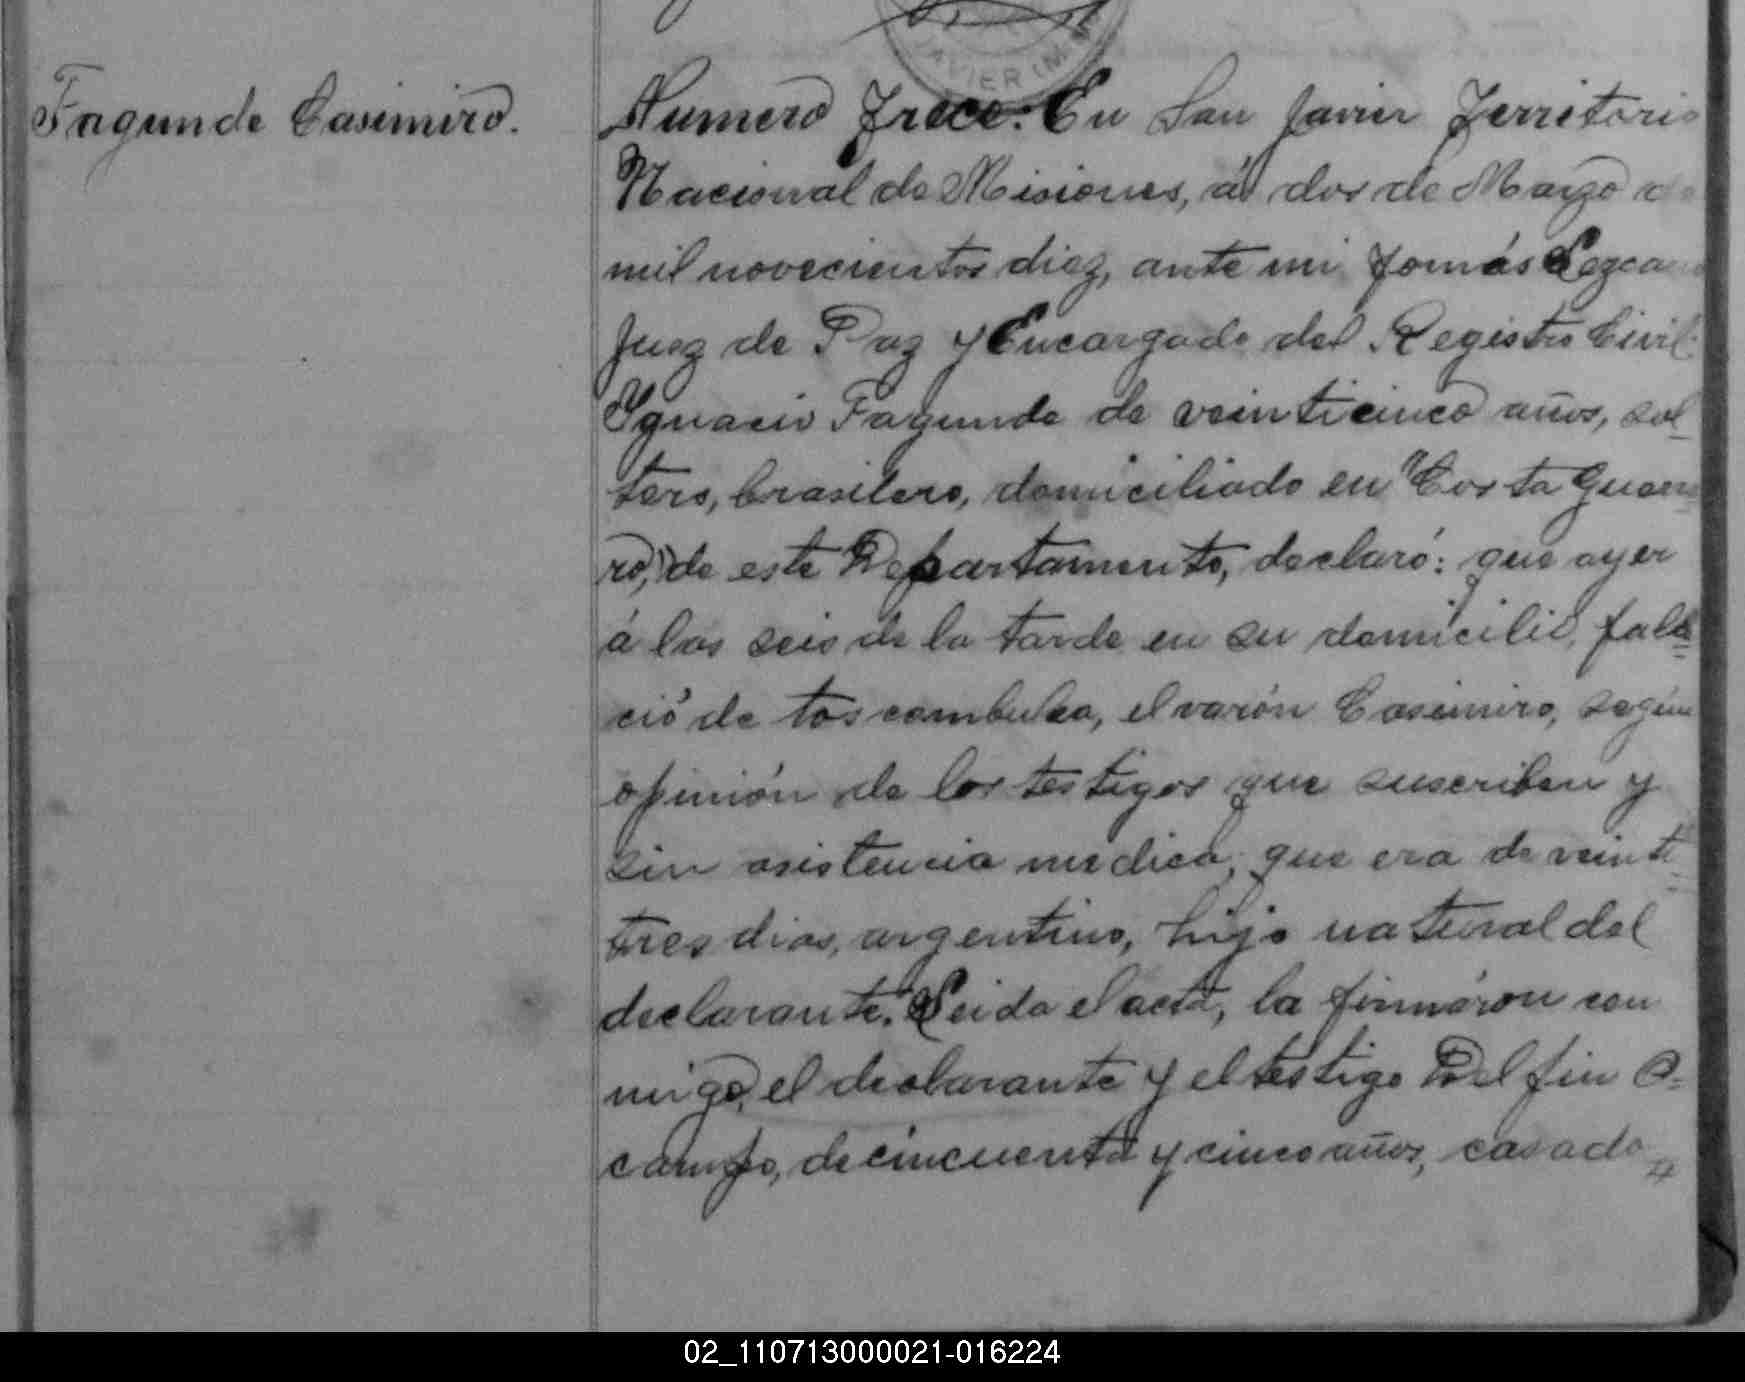 JAVIER (M
Fagunde Casimiro.
Numero Trece. En San Javier Territorio
Nacional de Misiones, á dos de Marzo de
mil novecientos diez, ante mi Tomás Lezcano
Juez de Paz y Encargado del Registro Civil
Ygnacio Fagunde de veinticinco años, sol_
tero, brasilero, domiciliado en "Costa Guerre
ro," de este Departamento, declaró: que ayer
á las seis de la tarde en su domicilio, falle=
ció de tos combulsa, el varón Casimiro, según
opinión de los testigos que suscriben y
sin asistencia medica, que era de veinti=
tres dias, argentino, hijo natural del
declarante. Leida el acta, la firmáron con
migo, el declarante y el testigo Delfin O=
campo, de cincuenta y cinco años, casado #
02_110713000021-016224